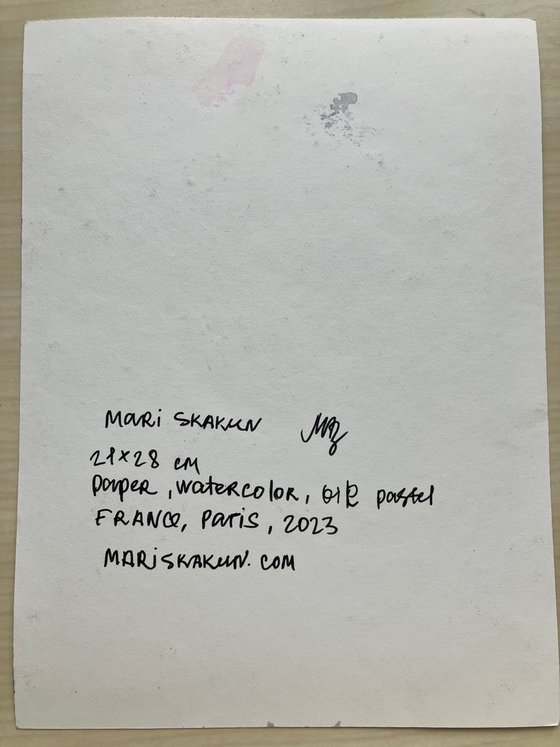 Mari SKAKUN
21×28 cm
paper, watercolor, oil pastel
FRANCE, Paris, 2023
MARISKAKUN.COM